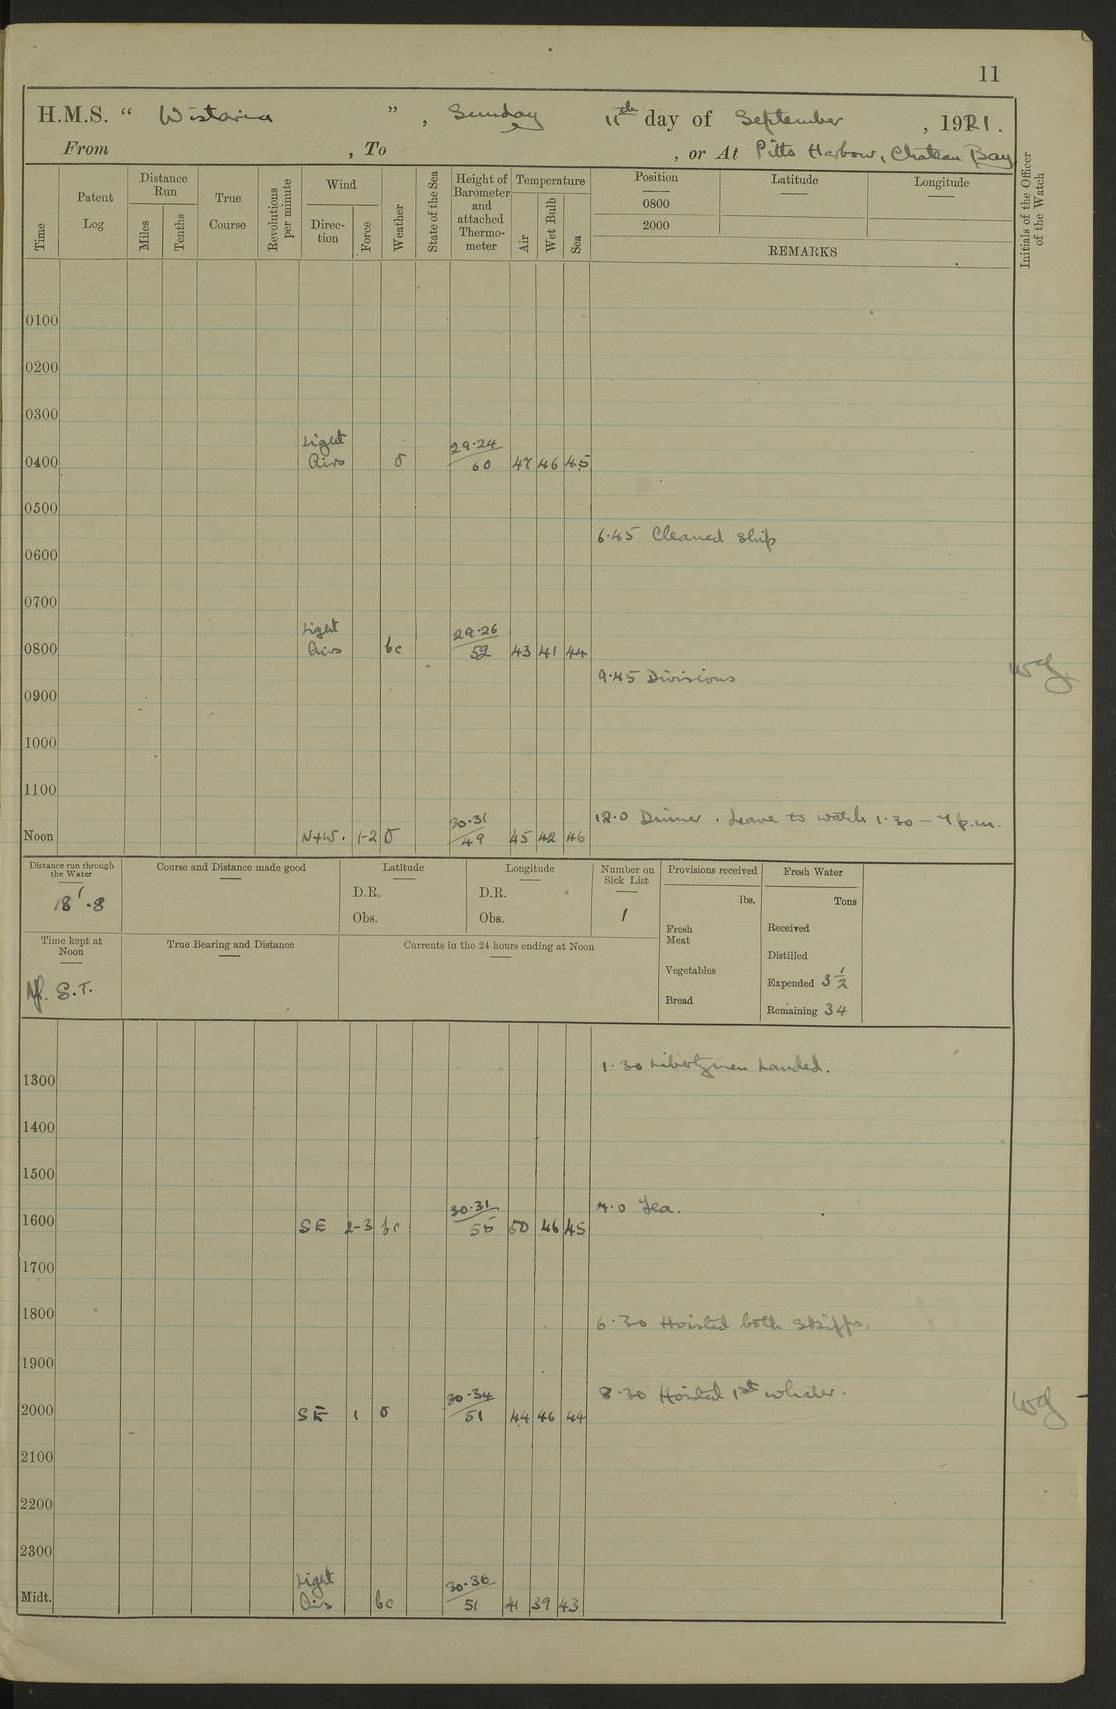 11
H.M.S. “ Wistaria ” , Sunday 11th day of September , 1921.
From , To , or At Pitts Harbour, Chateau Bay
Time
Patent Log
Distance Run
Miles
Tenths
True Course
Revolutions per minute
Wind
Direc-tion
Force
Weather
State of the Sea
Height of Barometer and attached Thermo-meter
Temperature
Air
Wet Bulb
Sea
Position
0800
2000
Latitude
Longitude
REMARKS
Initials of the Officer of the Watch
0100
0200
0300
Light 29·24
0400 Airs o 60 47 46 45
0500
6·45 Cleaned Ship
0600
0700
Light 29·26
0800 Airs bc 52 43 41 44
9·45 Divisions
0900
1000
1100
12·0 Dinner. Leave to watch 1·30 – 7 p.m.
30·31
Noon N+W. 1-2 o 49 45 42 46
Distance run through the Water
18'·8
Course and Distance made good
Latitude
D.R.
Obs.
Longitude
D.R.
Obs.
Number on Sick List
1
Provisions received
lbs.
Fresh Meat
Vegetables
Bread
Fresh Water
Tons
Received
Distilled
Expended 3 1/2
Remaining 34
Time kept at Noon
S.T.
True Bearing and Distance
Currents in the 24 hours ending at Noon
1·30 Libertymen Landed.
1300
1400
1500
30·31 4·0 Tea.
1600 SE 2-3 bc 55 50 46 45
1700
1800
6·30 Hoisted both Skiffs.
1900
30·34 8·30 Hoisted 1st whaler.
2000 SE 1 o 51 44 46 44
2100
2200
2300
Light 30·36
Midt. Airs bc 51 41 39 43